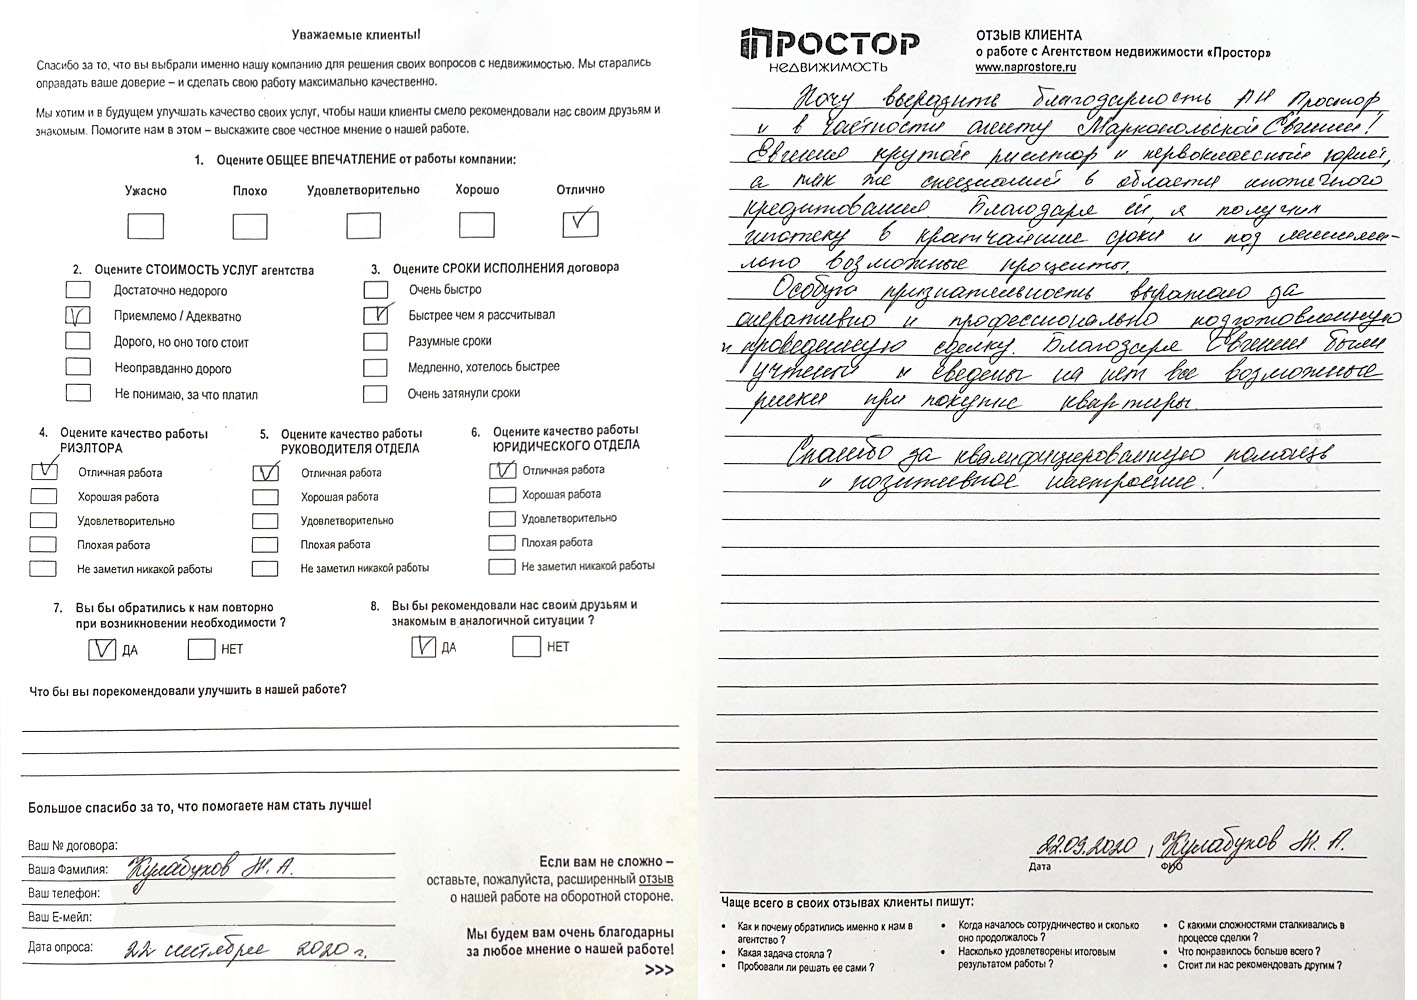 Уважаемые клиенты!
Спасибо за то, что вы выбрали именно нашу компанию для решения своих вопросов с недвижимостью. Мы старались
оправдать ваше доверие – и сделать свою работу максимально качественно.
Мы хотим и в будущем улучшать качество своих услуг, чтобы наши клиенты смело рекомендовали нас своим друзьям и
знакомым. Помогите нам в этом – выскажите свое честное мнение о нашей работе.
1. Оцените ОБЩЕЕ ВПЕЧАТЛЕНИЕ от работы компании:
Ужасно Плохо Удовлетворительно Хорошо Отлично
2. Оцените СТОИМОСТЬ УСЛУГ агентства
Достаточно недорого
Приемлемо / Адекватно
Дорого, но оно того стоит
Неоправданно дорого
Не понимаю, за что платил
3. Оцените СРОКИ ИСПОЛНЕНИЯ договора
Очень быстро
Быстрее чем я рассчитывал
Разумные сроки
Медленно, хотелось быстрее
Очень затянули сроки
4. Оцените качество работы
РИЭЛТОРА
Отличная работа
Хорошая работа
Удовлетворительно
Плохая работа
Не заметил никакой работы
5. Оцените качество работы
РУКОВОДИТЕЛЯ ОТДЕЛА
Отличная работа
Хорошая работа
Удовлетворительно
Плохая работа
Не заметил никакой работы
6. Оцените качество работы
ЮРИДИЧЕСКОГО ОТДЕЛА
Отличная работа
Хорошая работа
Удовлетворительно
Плохая работа
Не заметил никакой работы
7. Вы бы обратились к нам повторно
при возникновении необходимости ?
ДА НЕТ
8. Вы бы рекомендовали нас своим друзьям и
знакомым в аналогичной ситуации ?
ДА НЕТ
Что бы вы порекомендовали улучшить в нашей работе?
Большое спасибо за то, что помогаете нам стать лучше!
Ваш № договора:
Ваша Фамилия: Кулабухов Ж. А.
Ваш телефон:
Ваш Е-мейл:
Дата опроса: 22 сентября 2020 г.
Если вам не сложно –
оставьте, пожалуйста, расширенный отзыв
о нашей работе на оборотной стороне.
Мы будем вам очень благодарны
за любое мнение о нашей работе!
>>>
ПРОСТОР
НЕДВИЖИМОСТЬ
ОТЗЫВ КЛИЕНТА
о работе с Агентством недвижимости «Простор»
www.naprostore.ru
Хочу выразить благодарность АН Простор
и в частности агенту Маркопольской Евгении!
Евгения крутой риелтор и первоклассный юрист,
а так же специалист в области ипотечного
кредитования. Благодаря ей, я получил
ипотеку в кратчайшие сроки и под минима-
льно возможные проценты.
Особую признательность выражаю за
оперативно и профессионально подготовленную
и проведенную сделку. Благодаря Евгении были
учтены и сведены на нет все возможные
риски при покупке квартиры.
Спасибо за квалифицированную помощь
и позитивное настроение!
22.09.2020, Кулабухов Ж. А.
Дата ФИО
Чаще всего в своих отзывах клиенты пишут:
• Как и почему обратились именно к нам в
агентство ?
• Какая задача стояла ?
• Пробовали ли решать ее сами ?
• Когда началось сотрудничество и сколько
оно продолжалось ?
• Насколько удовлетворены итоговым
результатом работы ?
• С какими сложностями сталкивались в
процессе сделки ?
• Что понравилось больше всего ?
• Стоит ли нас рекомендовать другим ?